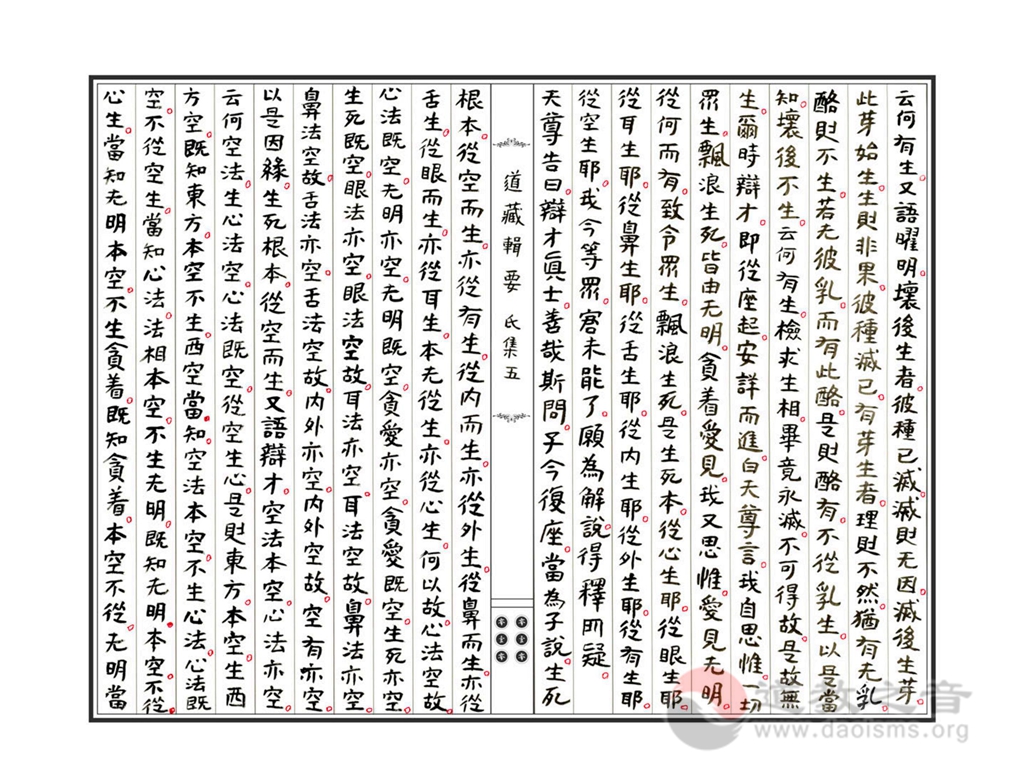 云何有生又語曜明壞後生者彼種已滅滅則无因滅後生芽
此芽始生生則非果彼種滅已有芽生者理則不然猶有无乳
酪則不生若无彼乳而有此酪是則酪有不從乳生以是當
知壞後不生云何有生檢求生相畢竟永滅不可得故是故無
生爾時辯才即從座起安詳而進白天尊言我自思惟一切
眾生飄浪生死皆由无明貪着愛見我又思惟愛見无明
從何而有致令眾生飄浪生死是生死本從心生耶從眼生耶
從耳生耶從鼻生耶從舌生耶從內生耶從外生耶從有生耶
從空生耶我今等眾窘未能了願為解說得釋罔疑
天尊告曰辯才真士善哉斯問子今復座當為子說生死
道藏輯要 氏集五
根本從空而生亦從有生從内而生亦從外生從鼻而生亦從
舌生從眼而生亦從耳生本无從生亦從心生何以故心法空故
心法既空无明亦空无明既空貪愛亦空貪愛既空生死亦空
生死既空眼法亦空眼法空故耳法亦空耳法空故鼻法亦空
鼻法空故舌法亦空舌法空故内外亦空内外空故空有亦空
以是因緣生死根本從空而生又語辯才空法本空心法亦空
云何空法生心法空心法既空從空生心是則東方本空生西
方空既知東方本空不生西空當知空法本空不生心法心法既
空不從空生當知心法法相本空不生无明既知无明本空不從
心生當知无明本空不生貪着既知貪着本空不從无明當
道教之音
www.daoisms.org